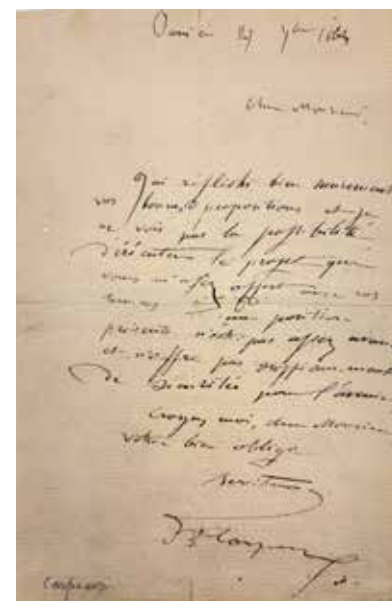 Paris ce 27 7bre
cher Monsieur,
J'ai réfléchi bien murement
vos bonnes propositions et je
ne vois pas la possibilité
d'exécuter le projet que
vous m'avez offert avec vos
ma position
présente n'est pas assez
et n'offre pas suffisamment
de sécurité pour l'avenir
croyez moi, cher Monsieur
votre bien obligé
Serviteur
JBte Carpeaux
Carpeaux